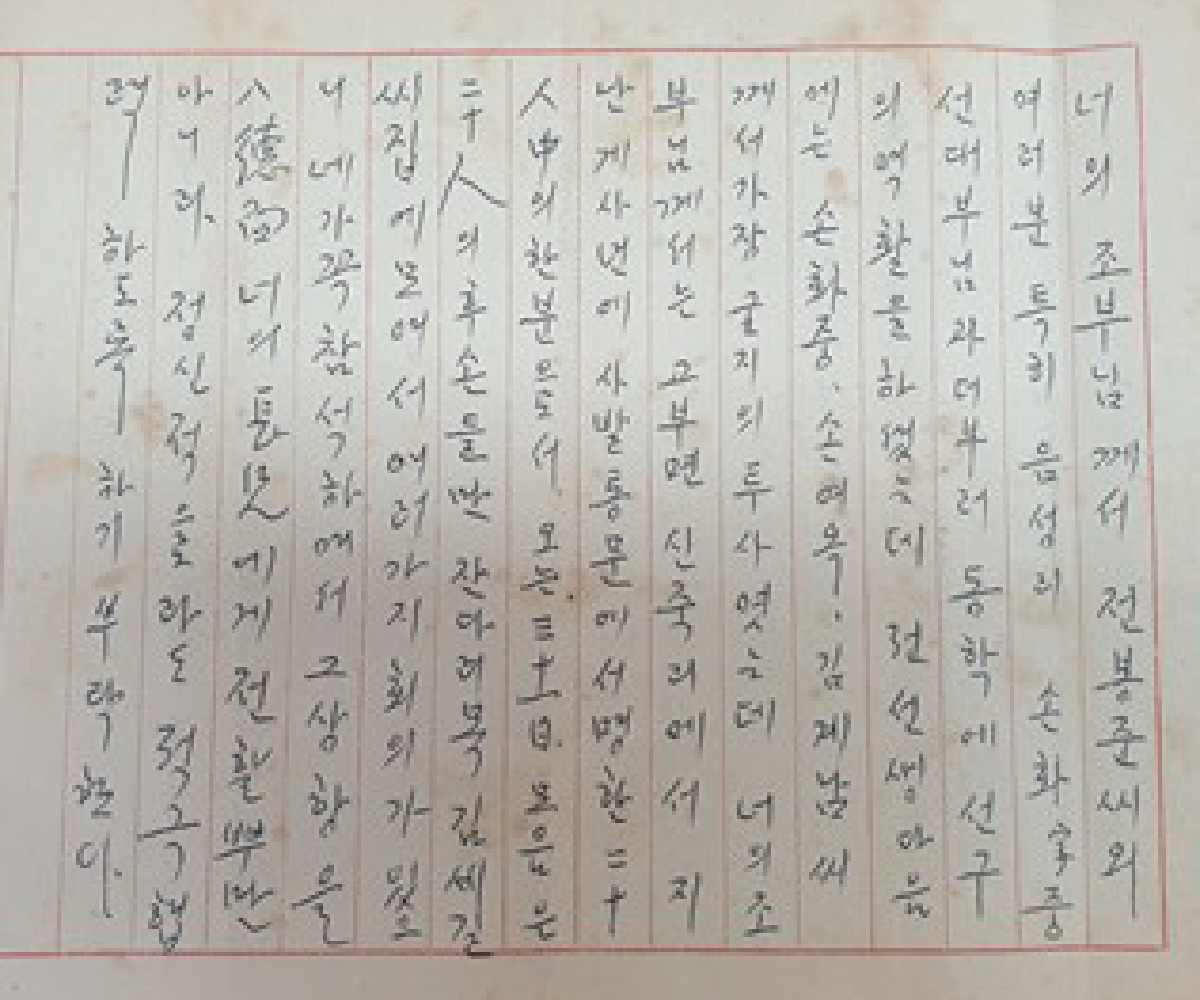 너의 조부님께서 전봉준씨외
여러분 특히 음성리 손화중
선대부님과 더부러 동학에 선구
의 역활을 하였는데 전선생 다음
에는 손화중、손여옥、김계남씨
께서 가장 굴지의 투사였는데 너의 조
부님께서는 고부면 신죽리에서 지
난 계사년에 사발통문에서 명한 二十
人中의 한분으로서 오는 三十日 모임은
二十人의 후손들만 잔아려목 김세길
씨집에 모여서 여러가지 회의가 있으
니 네가 꼭 참석하여서 그 상항을
德 너의 에게 전할뿐만
아니라、정신적으로라도 적극 협
력 하도록 하기 부락한다.